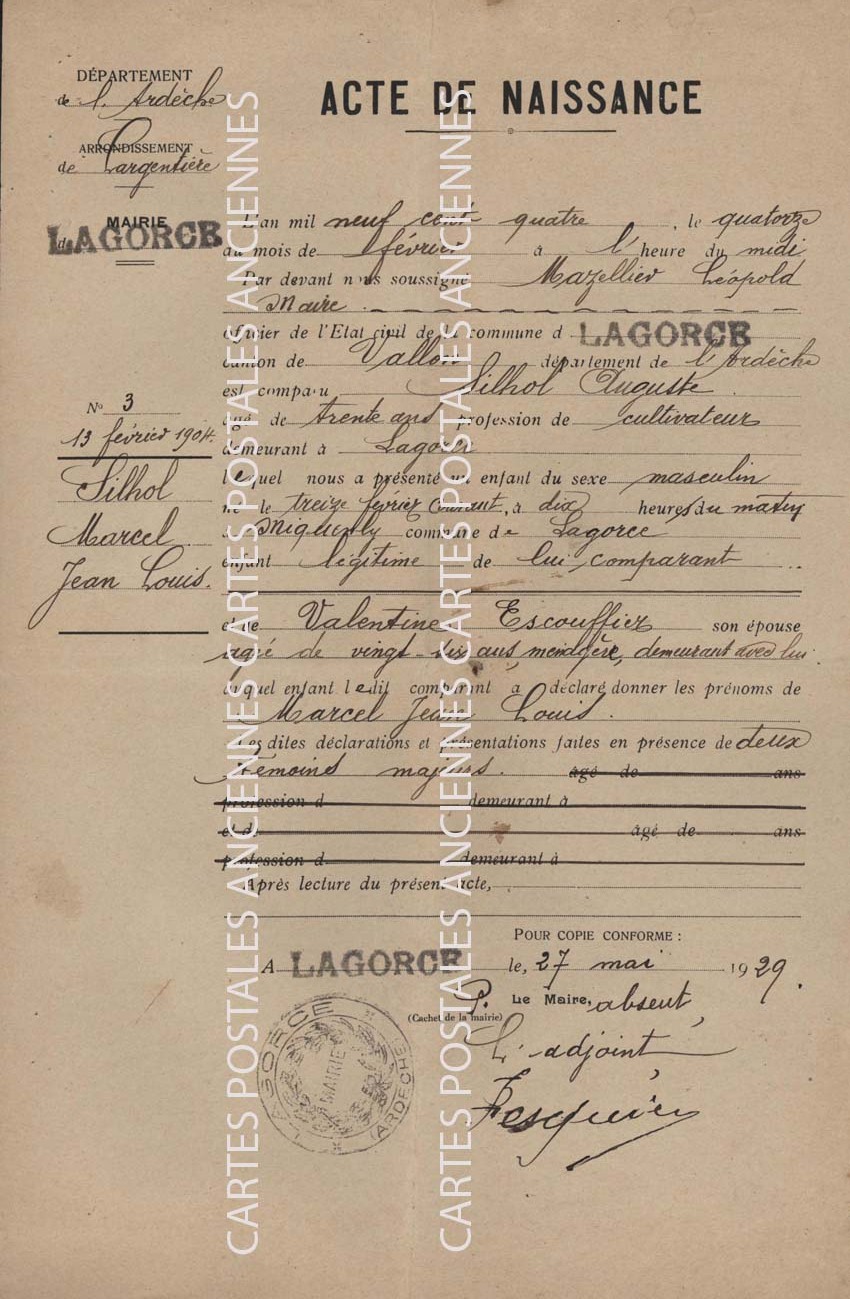 DÉPARTEMENT
de l'Ardèche
ARRONDISSEMENT
de Largentière
MAIRIE
de LAGORCE
N° 3
13 février 1904.
Silhol
Marcel
Jean Louis.
ACTE DE NAISSANCE
L'an mil neuf cent quatre, le quatorze
du mois de février à l'heure du midi
Par devant nous soussigné Mazellier Léopold
Maire.
officier de l'Etat civil de la commune d LAGORCE
canton de Vallon département de l'Ardèche
est comparu Silhol Auguste.
âgé de trente ans profession de cultivateur
demeurant à Lagorce
lequel nous a présenté un enfant du sexe masculin
né le treize février courant, à dix heures du matin
à commune de Lagorce
enfant légitime de lui comparant
et de Valentine Escouffier son épouse
agée de vingt-six ans, ménagère, demeurant avec lui.
auquel enfant ledit comparant a déclaré donner les prénoms de
Marcel Jean Louis.
Les dites déclarations et présentations faites en présence de deux
témoins majeurs. âgé de ans
profession d demeurant à
et de âgé de ans
profession d demeurant à
Après lecture du présent acte,
POUR COPIE CONFORME :
A LAGORCE le, 27 mai 1929.
P. Le Maire, absent,
(Cachet de la mairie)
L'adjoint
LAGORCE
MAIRIE
(ARDÈCHE)
CARTES POSTALES ANCIENNES CARTES POSTALES ANCIENNES
CARTES POSTALES ANCIENNES CARTES POSTALES ANCIENNES